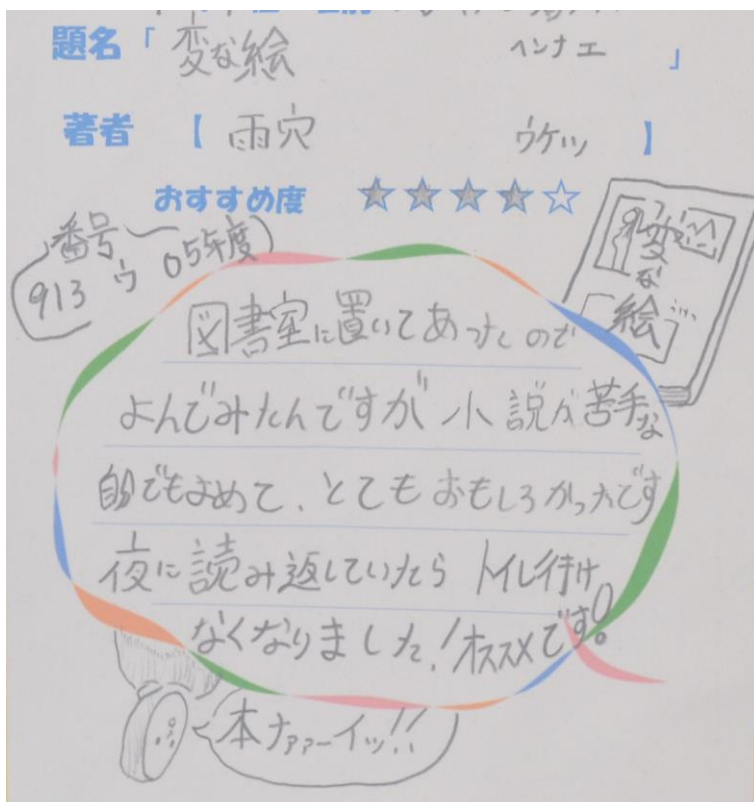 題名「変な絵 ヘンナエ」
著者【雨穴 ウケツ】
おすすめ度 ★★★★☆
番号
913 ウ 05年度
変な
絵
図書室に置いてあったので
よんでみたんですが小説が苦手な
自分でもよめて、とてもおもしろかったです
夜に読み返していたらトイレ行け
なくなりました!オススメです!
本ナァァーイッ!!